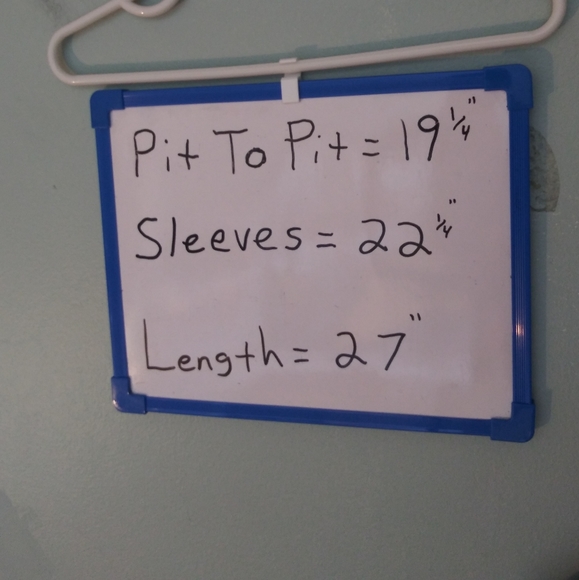 Pit To Pit = 19 1/4"
Sleeves = 22 1/4"
Length = 27"